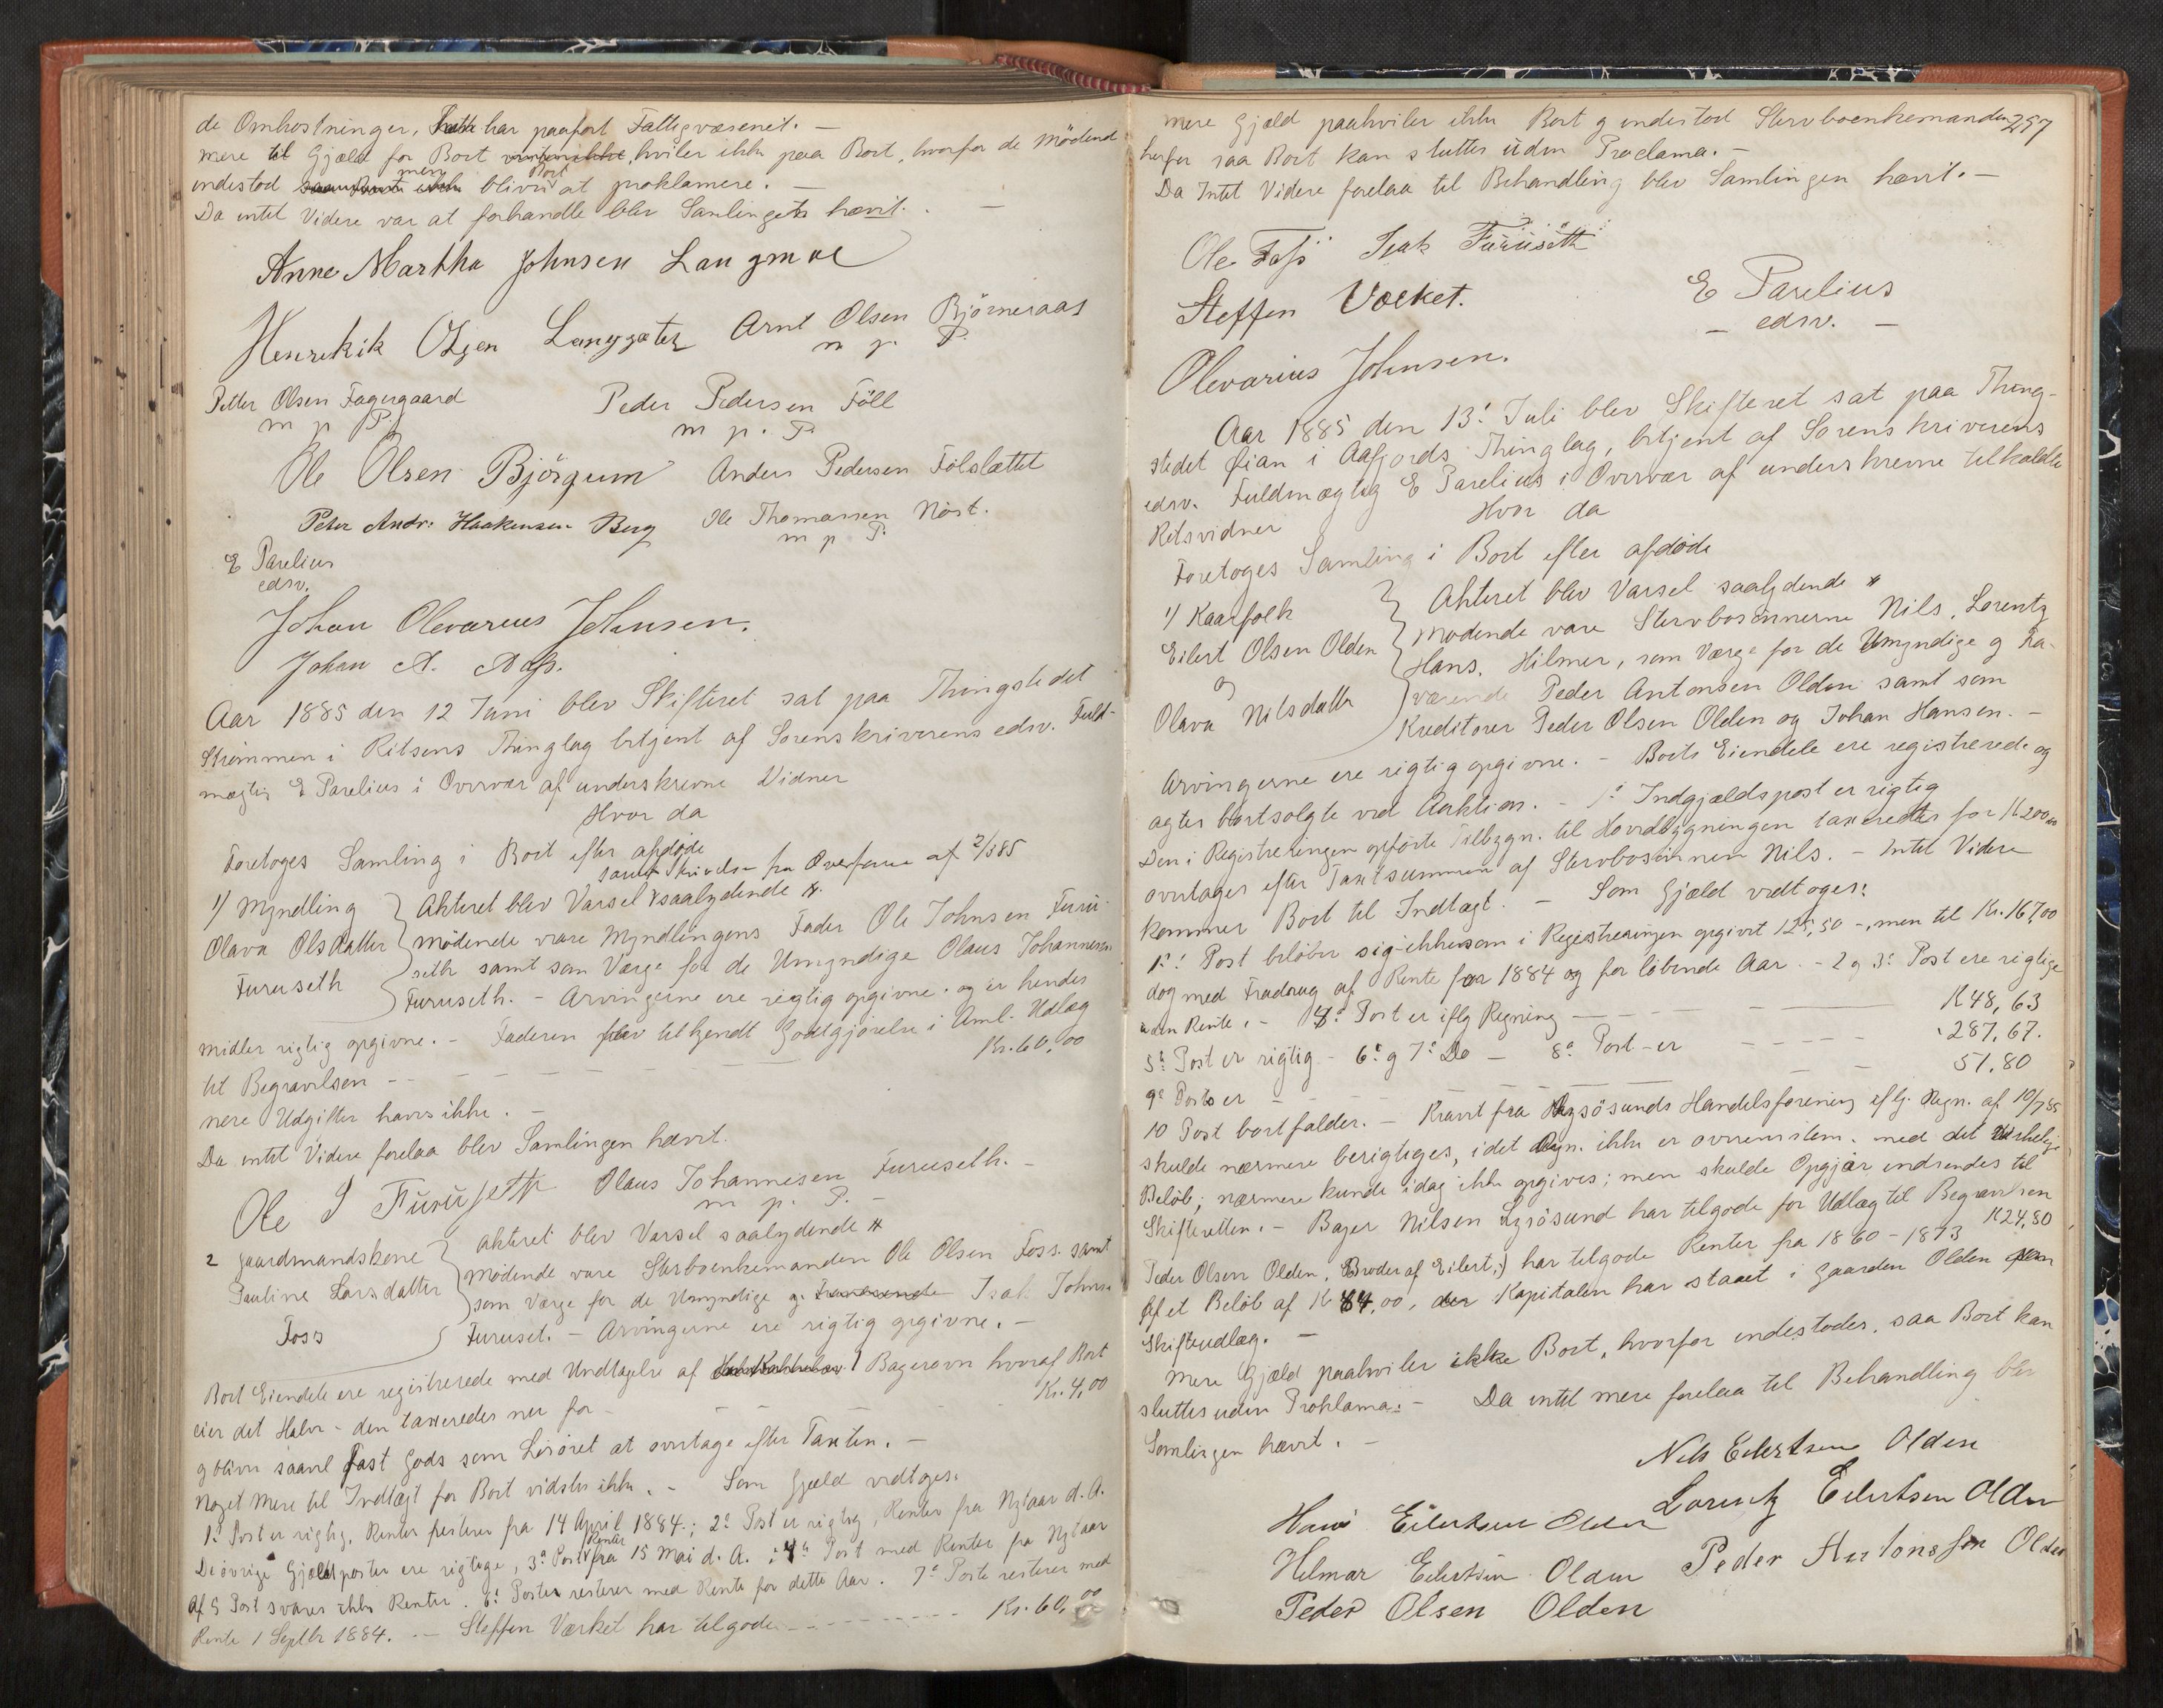 de Omkostninger, har paaført Fattigvæsenet. —
mere til Gjæld for Boet hviler ikke paa Boet, hvorfor de Mödend
men Boet
indestod bliver at proklamere. —
Da intet Videre var at forhandle blev Samlingen hævet. —
Anne Martha Johnsen Langmoe
Henrekik Olsen Langsæter Arnt Olsen Björneraas
m p. P.
Petter Olsen Fagergaard Peder Pedersen Föll
m p P. m p. P.
Ole Olsen Björgum Anders Pedersen Fölslættet
Peter Andr. Haakensen Berg Ole Thomassen Nöst.
m p P.
E Parelius
edsv.
Johan Olevarius Johnsen.
Johan A. Aas.
Aar 1885 den 12 Juni blev Skifteret sat paa Thingstedet
Strømmen i Ritsens Thinglag betjent af Sorenskriverens edsv. Fuld-
mægtig E Parelius i Overvær af underskrevne Vidner
Hvor da
Foretoges Samling i Boet efter afdöde
samt Skrivelse fra Overform. af 2/6 85
1) Myndling Akteret blev Varsel saalydende #.
Olava Olsdatter mödende vare Myndlingens Fader Ole Johnsen Furu-
Furuseth seth samt som Værge for de Umyndige Olaus Johannesen
Furuseth. - Arvingerne ere rigtig opgivne. og er hendes
midler rigtig opgivne. - Faderen blev tilkjendt Godtgjørelse i Aml. Udlæg
til Begravelsen — Kr. 60,00
mere Udgifter haves ikke. —
Da intet Videre forelaa blev Samlingen hævet.
Ole J Furuseth Olaus Johannesen Furuseth. -
m p. P. -
2 Gaardmandskone Akteret blev Varsel saalydende #
Pauline Larsdatter Mödende vare Sterboenkemanden Ole Olsen Foss. samt
Foss som Værge for de Umyndige Isak Johns.
Furuset. - Arvingerne ere rigtig opgivne. -
Boets Eiendele ere registrerede med Undtagelse af 1 Bagerovn hvoraf Boet
eier det Halve - den taxeredes nu for - Kr. 4,00
g bliver saavel Fast Gods som Lösöret at overtage efter Taxten. —
Noget Mere til Indtægt for Boet vidstes ikke. - Som Gjæld vedtoges.
1e Post er rigtig, Renter resterer fra 14 April 1884.; 2e Post er rigtig, Renter fra Nytaar d. A.
De övrige Gjældsposter ere rigtige, 3e Post Renter fra 15 Mai d. A. ; 4e Post med Renter fra Nytaar
Af 5 Post svares ikke Renter. 6e Poster resterer med Rente for dette Aar. 7e Poste resterer med
Rente 1 Septbr 1884. — Steffen Værket har tilgode - - - Kr. 60,00
257
mere Gjæld paahviler ikke Boet g indestod Stervboenkemanden
herfor saa Boet kan sluttes uden Proclama. —
Da Intet Videre forelaa til Behandling blev Samlingen hævet. —
Ole Foss Isak Furuseth
Steffen Værket. E Parelius
— edsv. —
Olevarius Johnsen.
Aar 1885 den 13de Juli blev Skifteret sat paa Thing-
stedet Øian i Aafjords Thinglag, betjent af Sorenskriverens
edsv. Fuldmægtig E Parelius i Overvær af underskrevne tilkaldte
Retsvidner Hvor da
Foretoges Samling i Boet efter afdöde
1) Kaarfolk Akteret blev Varsel saalydende #
Eilert Olsen Olden Mödende vare Stervbosönnerne Nils, Lorentz
og Hans, Hilmer, som Værge for de Umyndige g fra-
Olava Nilsdatter værende Peder Antonsen Olden samt som
Kreditorer Peder Olsen Olden og Johan Hansen. —
Arvingerne ere rigtig opgivne. - Boets Eiendele ere registrerede og
agtes bortsolgte ved Auktion. - 1e Indgjældspost er rigtig
Den i Registreringen opförte Tilbygn. til Hovedbygningen taxeredes for K 200,00
overtages efter Taxtsummen af Stervbosönnen Nils. - Intet Videre
kommer Boet til Indtægt. - Som Gjæld vedtoges:
1e Post belöber sig ikke som i Registreringen opgivet 125,50 -, men til Kr. 167,00
dog med Fradrag af Rente for 1884 og for löbende Aar. - 2 g 3e Post ere rigtige
uden Rente. - 4e Post er iflg Regning — K 48,63
5e Post er rigtig - 6e g 7e Do — 8e Post - er - 287,67.
9e Post er - 51,80
10 Post bortfalder. - Krævet fra Lysösunds Handelsforening iflg. Regn. af 10/7 85
skulde nærmere berigtiges, idet Regn. ikke er overensstem. med det virkelige
Belöb; nærmere kunde idag ikke opgives; men skulde Opgjør indsendes til
Skifteretten. - Bager Nilsen Lysösund har tilgode for Udlæg til Begravelsen K 24,80
Peder Olsen Olden, (Broder af Eilert,) har tilgode Renter fra 1860 - 1873
af et Belöb af K 84,00, der Kapitalen har staaet i Gaarden Olden
Skifteudlæg. —
Mere Gjæld paahviler ikke Boet, hvorfor indestodes, saa Boet kan
sluttes uden Proklama. - Da intet mere forelaa til Behandling blev
Samlingen hævet. —
Nils Eilertsen Olden
Hans Eilertsen Olden Lorentz Eilertsen Olden
Helmar Eilertsen Olden Peder Antonsen Olden
Peder Olsen Olden